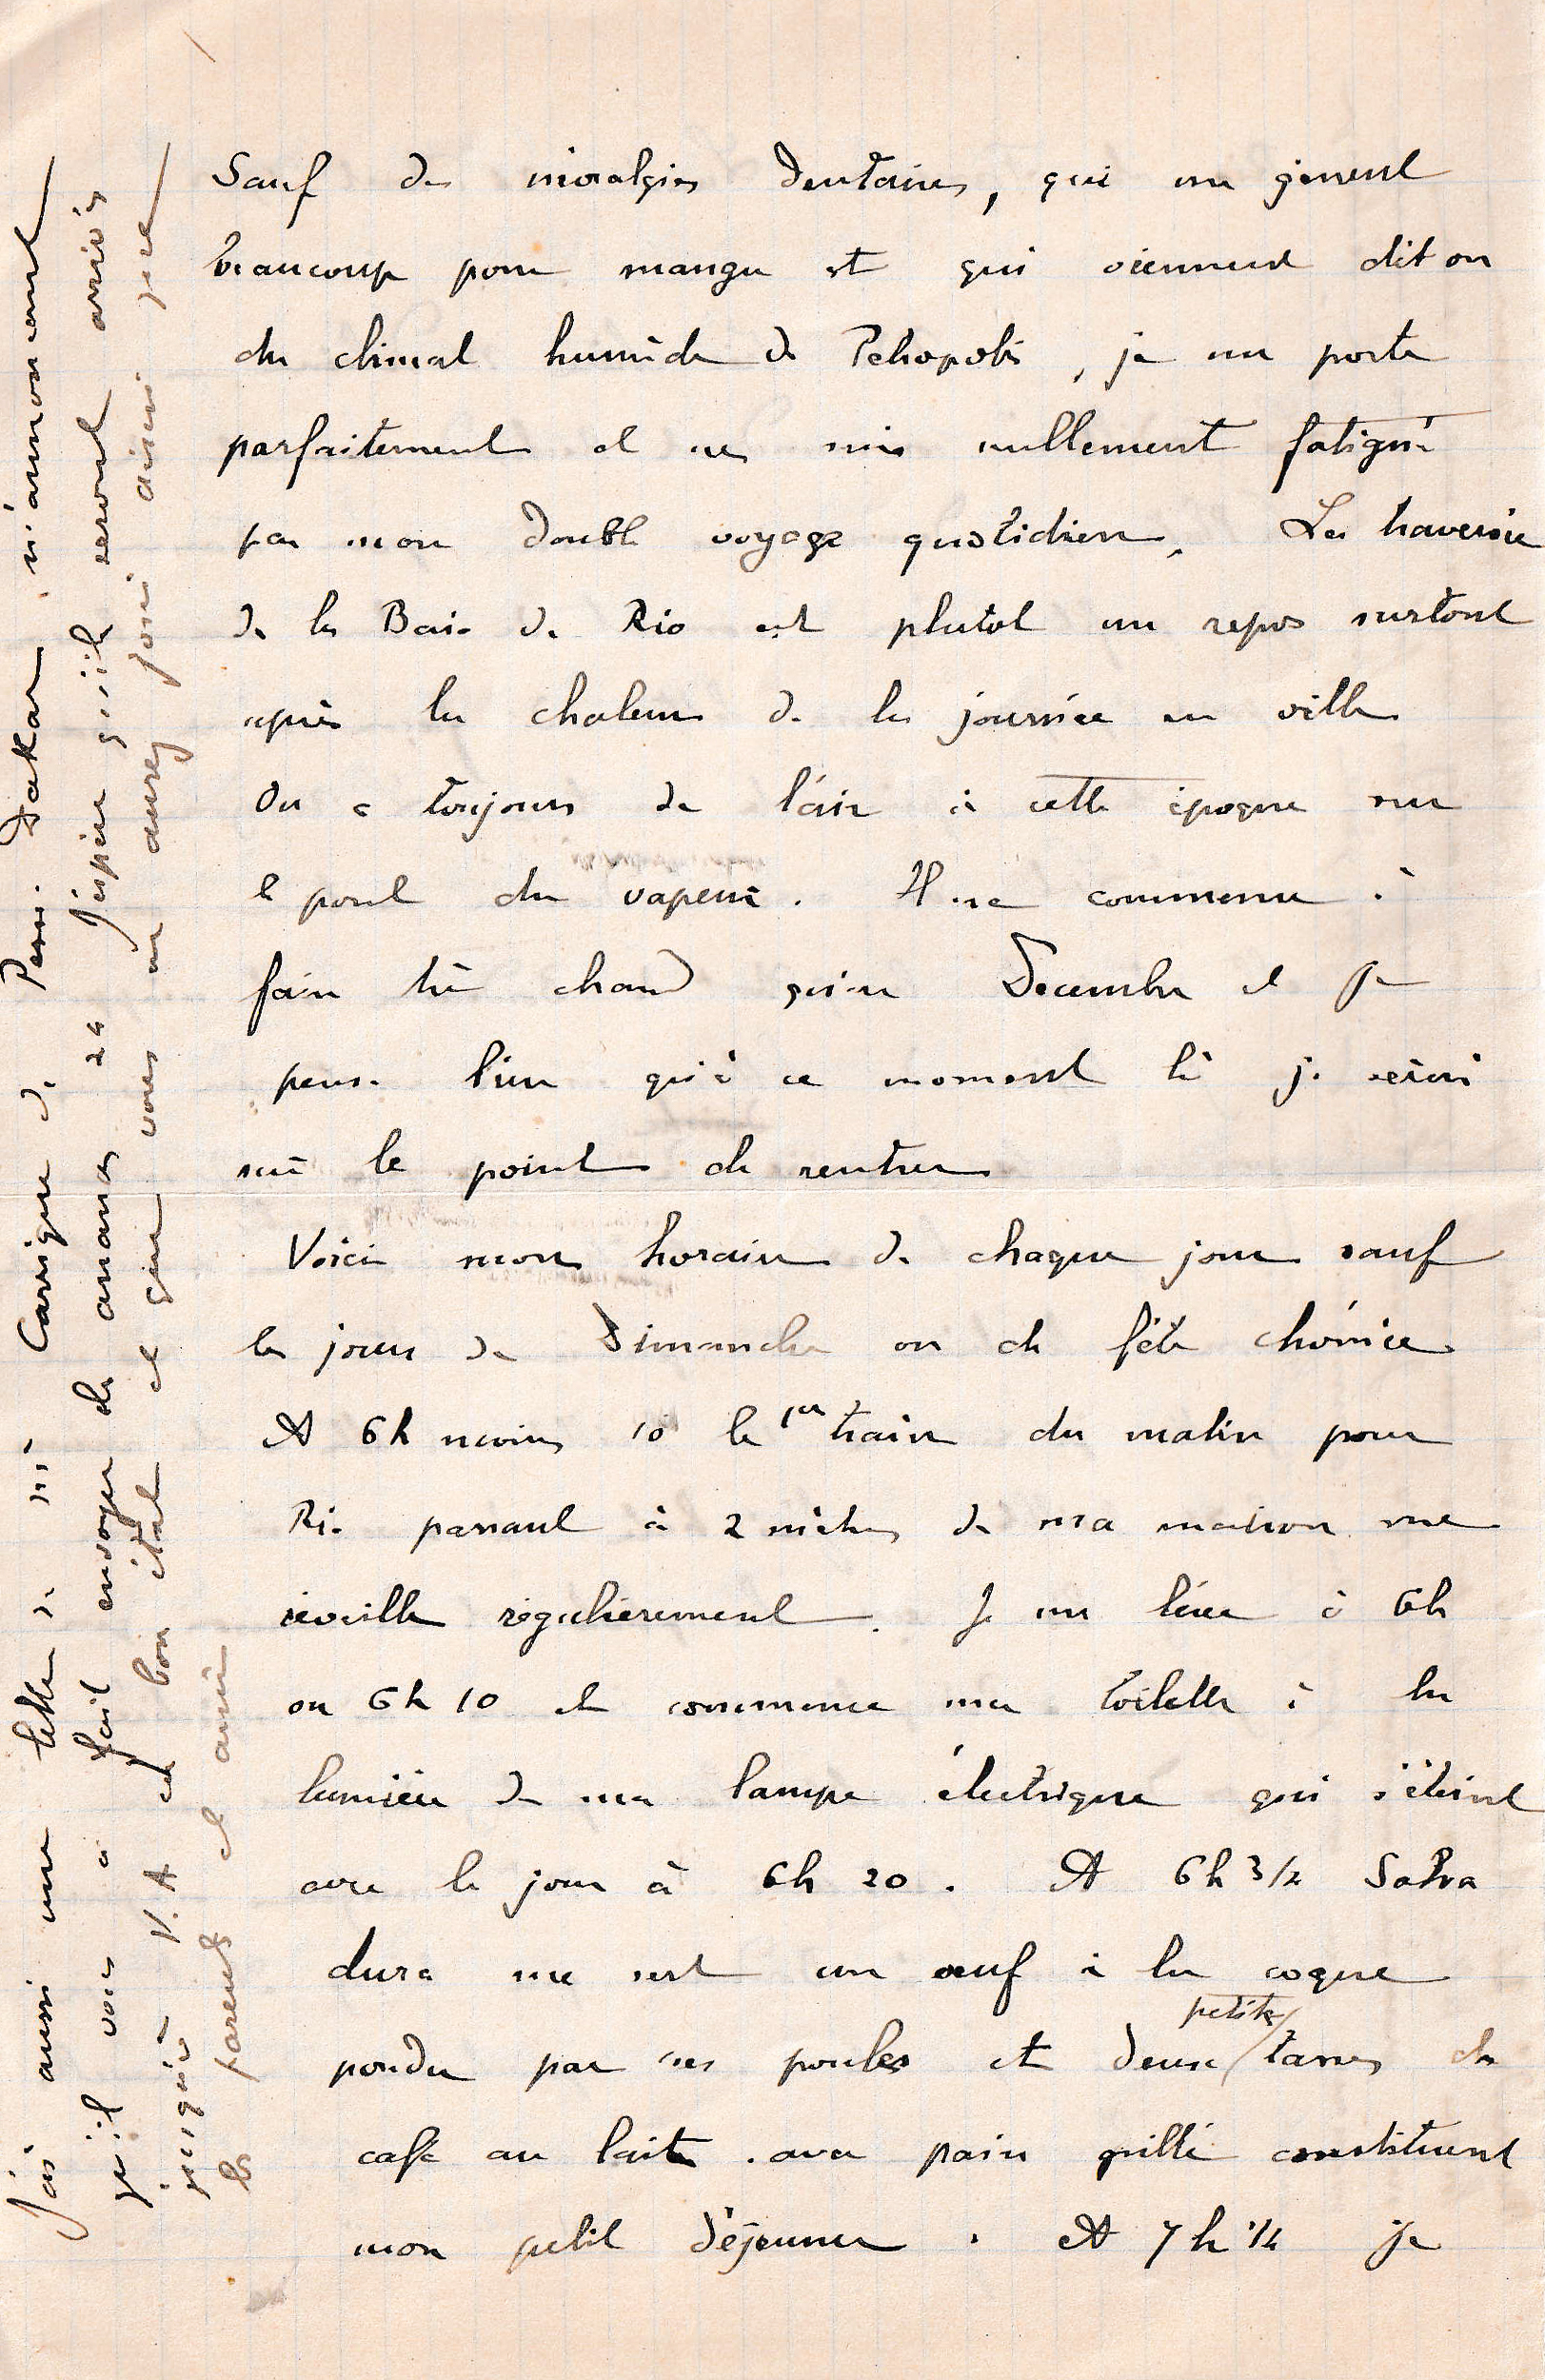 Sauf des névralgies dentaires, qui me gênent
beaucoup pour manger et qui viennent dit on
du climat humide de Petropolis, je me porte
parfaitement et ne suis nullement fatigué
par mon double voyage quotidien. La traversée
de la Baie de Rio est plutot un repos surtout
après la chaleur de la journée en ville
On a toujours de l'air à cette époque sur
le pont du vapeur. Il ne commence à
faire très chaud qu'en Decembre et je
pense bien qu'à ce moment là je serai
sur le point de rentrer
Voici mon horaire de chaque jour sauf
les jours de Dimanche ou de fête chômée
A 6h moins 10 le 1er train du matin pour
Rio passant à 2 mètres de ma maison me
réveille régulièrement. Je me lève à 6h
ou 6h 10 et commence ma toilette à la
lumière de ma lampe électrique qui s'éteint
avec le jour à 6h 20. A 6h 3/4 Salva
dora me sert un œuf à la coque
pondu par ses poules et deux petites tasses de
café au lait avec pain grillé constituent
mon petit déjeuner. A 7h 1/4 je
J'ai aussi une lettre de Mr Carrique de Peni Dakar m'annonçant
qu'il vous a fait envoyer des ananas J'espère qu'ils seront arrivés
en bon état et que vous en aurez joui ainsi que
les parents et amis